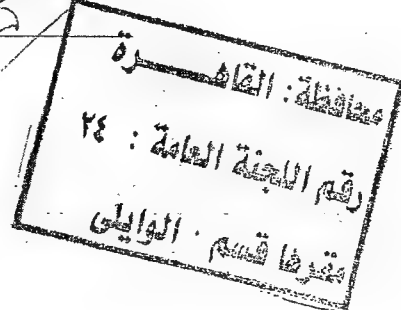 محافظة: القاهـــرة
رقم اللجنة العامة : ٢٤
مقرها قسم . الوايلى